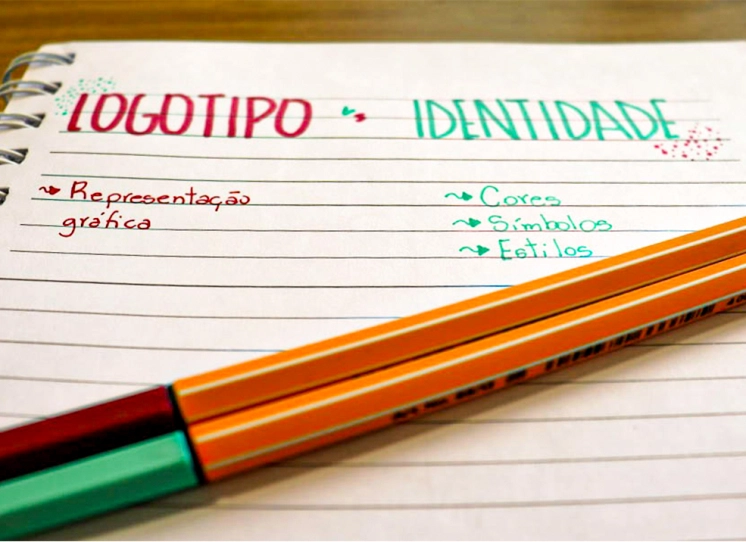 LOGOTIPO vs IDENTIDADE
→ Representação
gráfica
→ Cores
→ Símbolos
→ Estilos